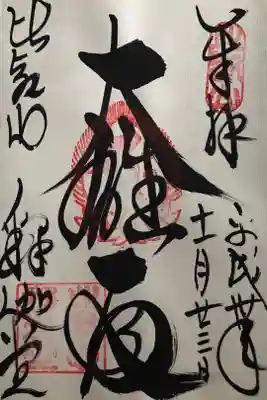 奉拝
平成
十一月廿三日
大雄殿
比叡山 釋迦堂